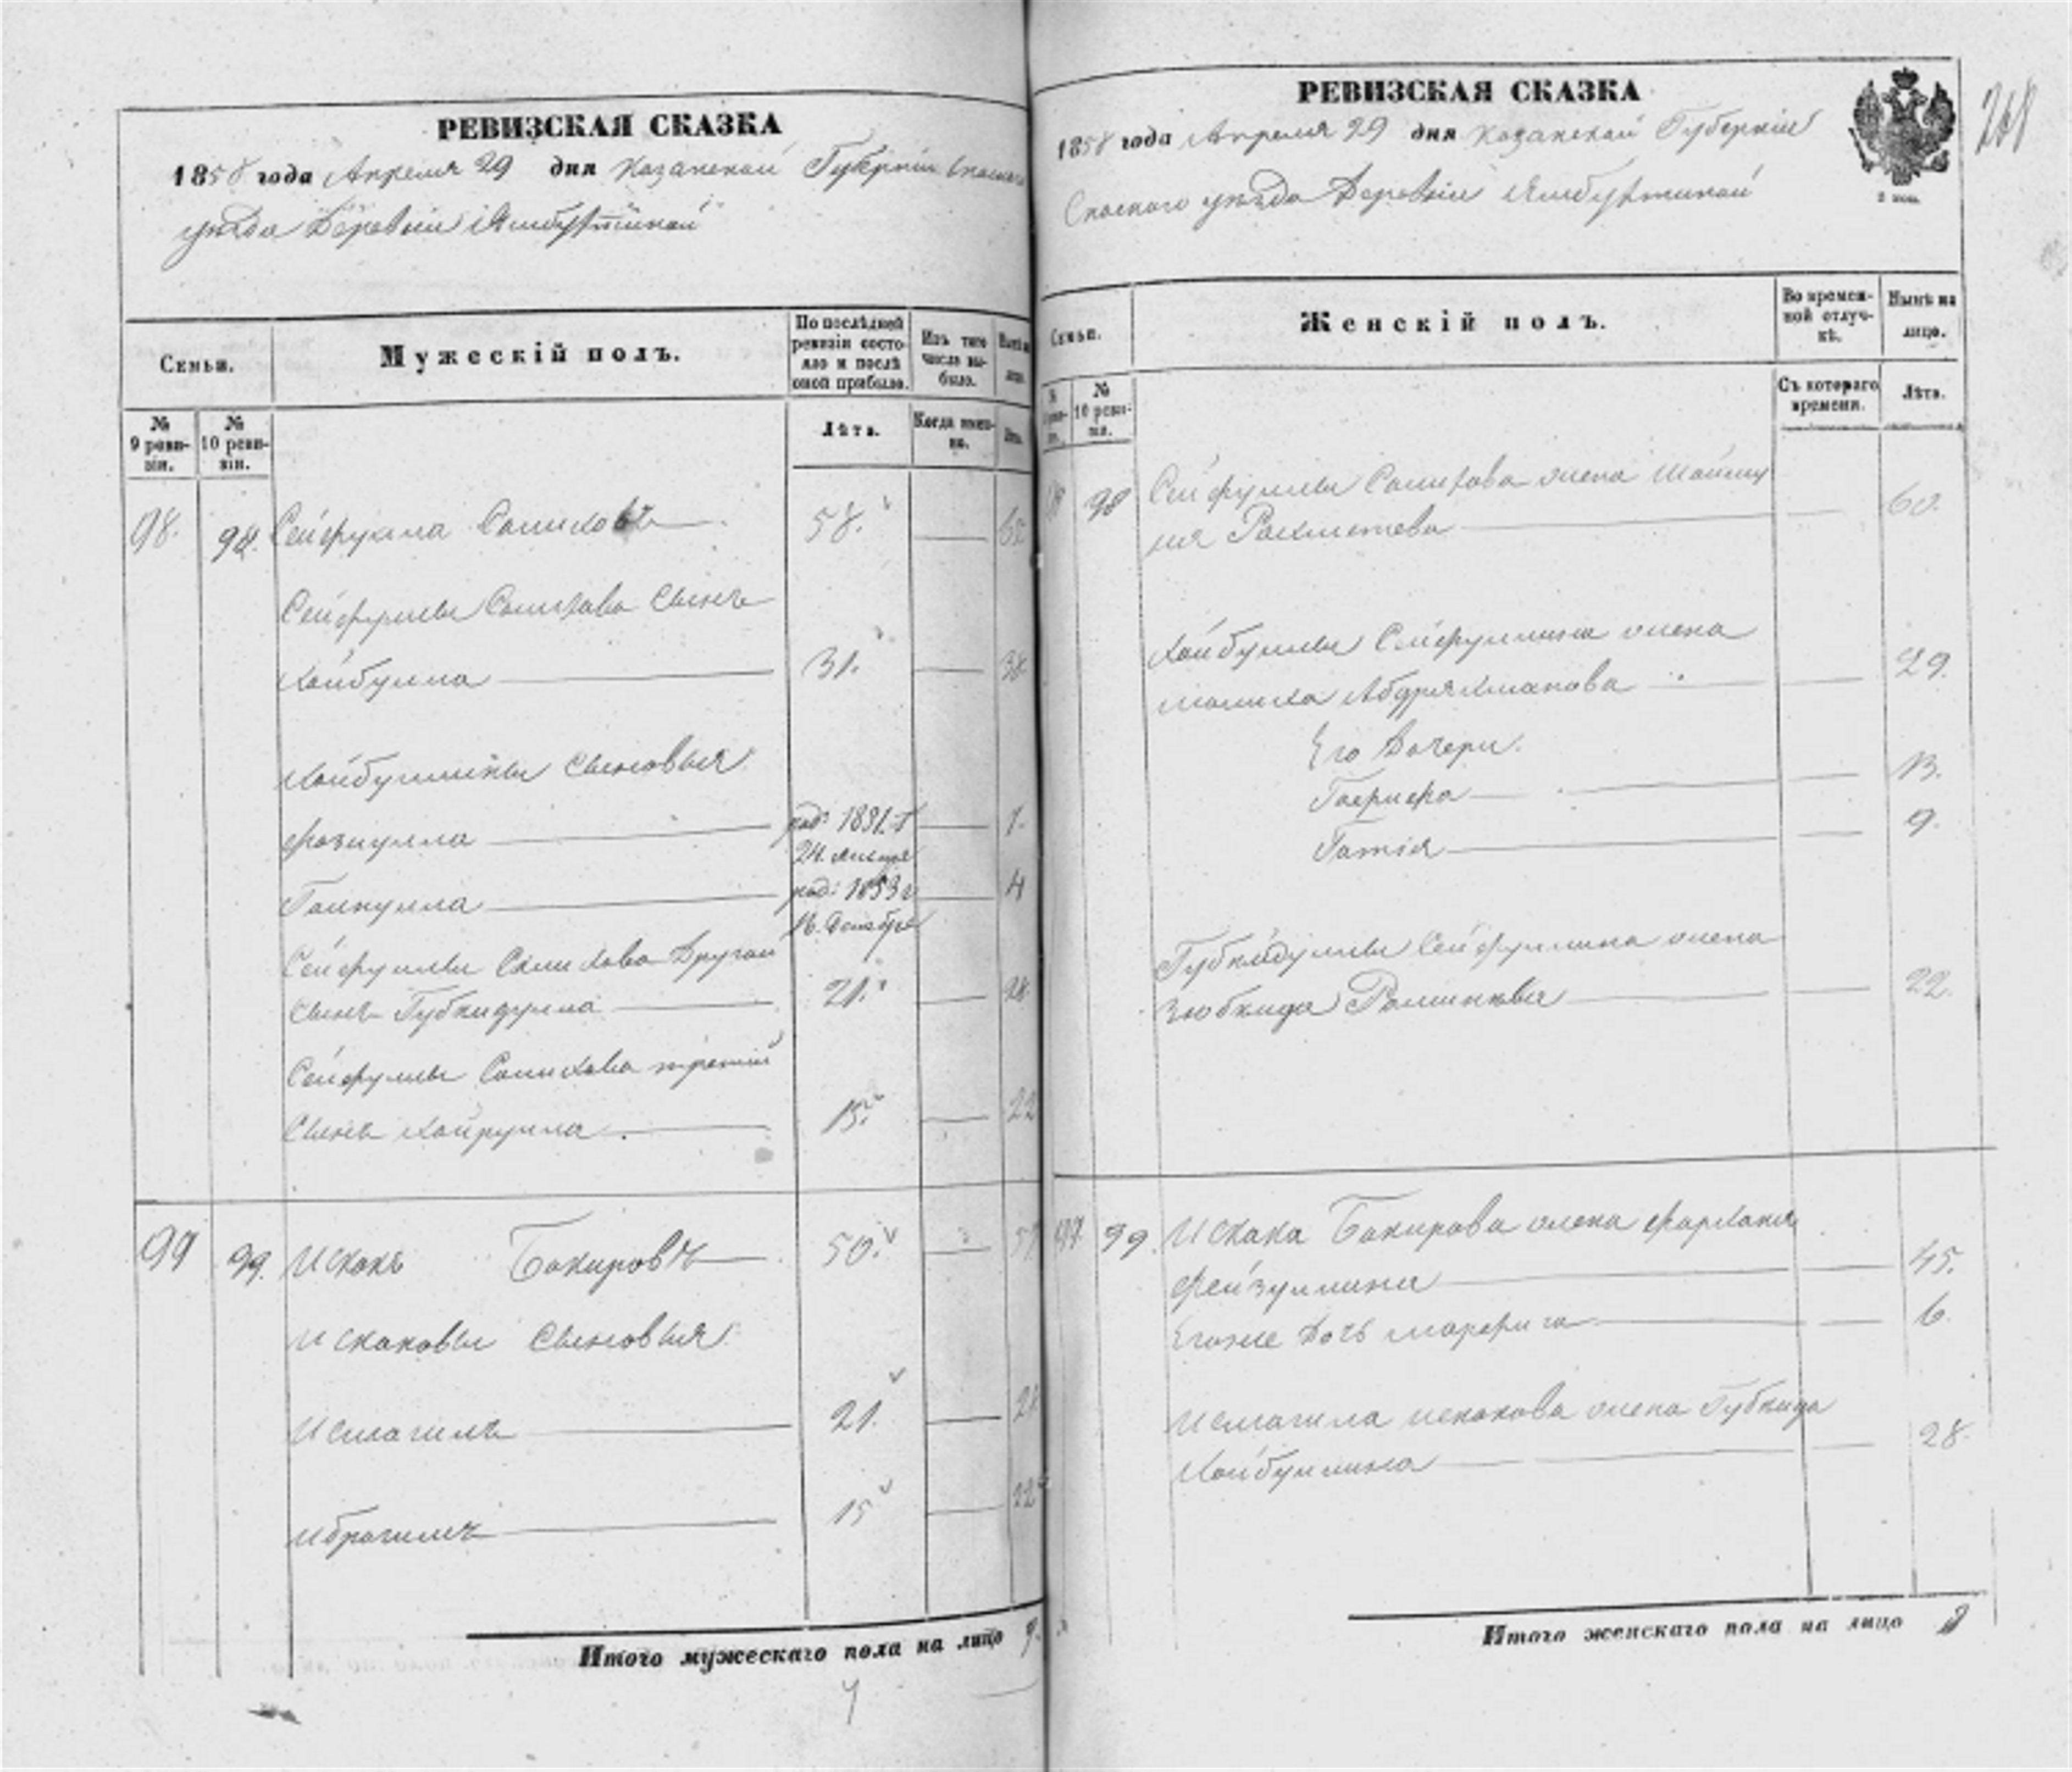 РЕВИЗСКАЯ СКАЗКА
1858 года Апреля 29 дня Казанской Губерніи Спаскаго
уѣзда Деревни Ямбухтиной
Семьи.
Мужескій полъ.
По послѣдней ревизіи состояло и послѣ оной прибыло.
Изъ того числа выбыло.
Нынѣ на лицо.
№ 9 ревизіи.
№ 10 ревизіи.
Лѣта.
Когда именно.
Лѣта.
98. 98. Сейфулла Салиховъ 58. 65
Сейфуллы Салихова Сынъ
Хайбулла 31. 38
Хайбуллины Сыновья
Фазулла род: 1851. г 7.
24. Января
Галиулла род: 1853 г 4
16. Декабря
Сейфуллы Салихова Другой
Сынъ Губкидулла 21. 28.
Сейфуллы Салихова третій
Сынъ Хайрулла 15. 22
99 99. Искакъ Бакировъ 50. 57
Искаковы Сыновья
Исмагилъ 21. 28
Ибрагимъ 15 22
Итого мужескаго пола на лицо 9.
РЕВИЗСКАЯ СКАЗКА
1858 года Апреля 29 дня Казанской Губерніи
Спаского уѣзда Деревни Ямбухтиной
2 коп.
Семьи.
Женскій полъ.
Во временной отлучкѣ.
Нынѣ на лицо.
№ 10 ревизіи.
Съ котораго времени.
Лѣта.
98 98 Сейфуллы Салихова жена
Рахметева 60.
Хайбуллы Сейфуллина жена
Малика Абдряхманова 29.
Его Дочери.
13.
9.
Губкидуллы Сейфуллина жена
Зюбкида 22.
99 99. Искака Бакирова жена Фархана
Фейзуллина 45.
Егоже Дочь 6.
Исмагила Искакова жена Губкида
Хайбуллина 28.
Итого женскаго пола на лицо